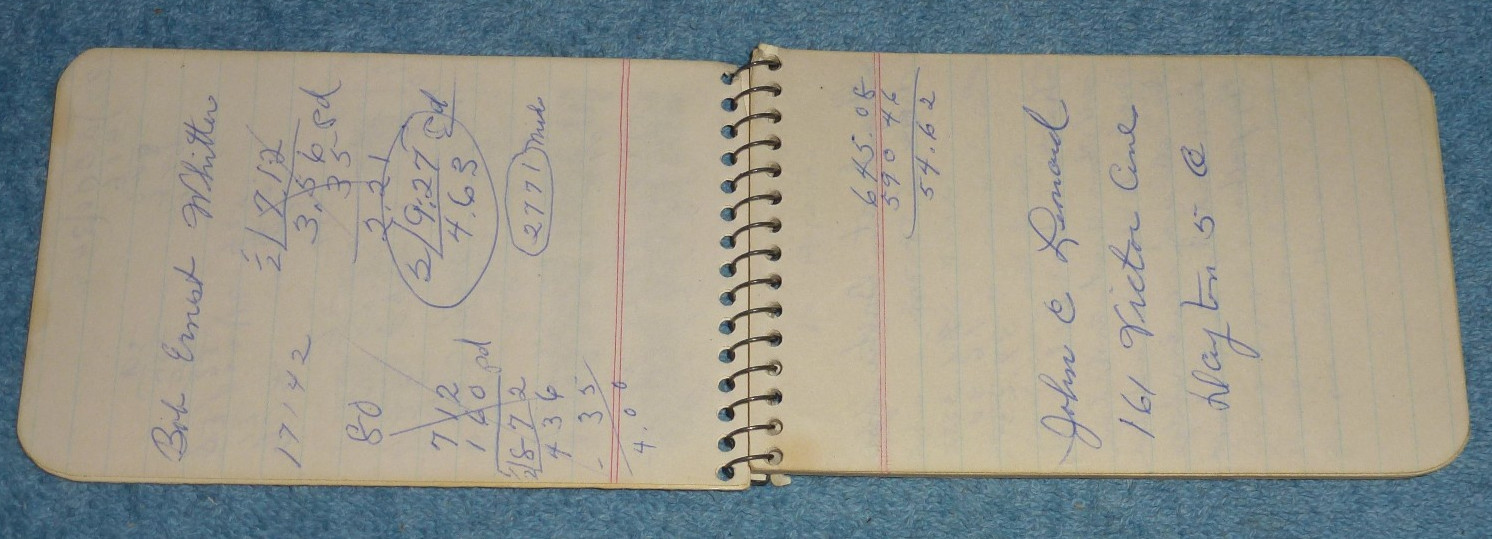 Bob Ernest Whitten
17142
80
7 12
1 60 pd
2 8 7 2
4 3 6
- 3 5
4.0
2 7.12
3.56 pd
35
3.21
2 9.27 pd
4.63
2771
645.05
590 46
54.62
John C Leonard
161 Victor Ave
Dayton 5 O